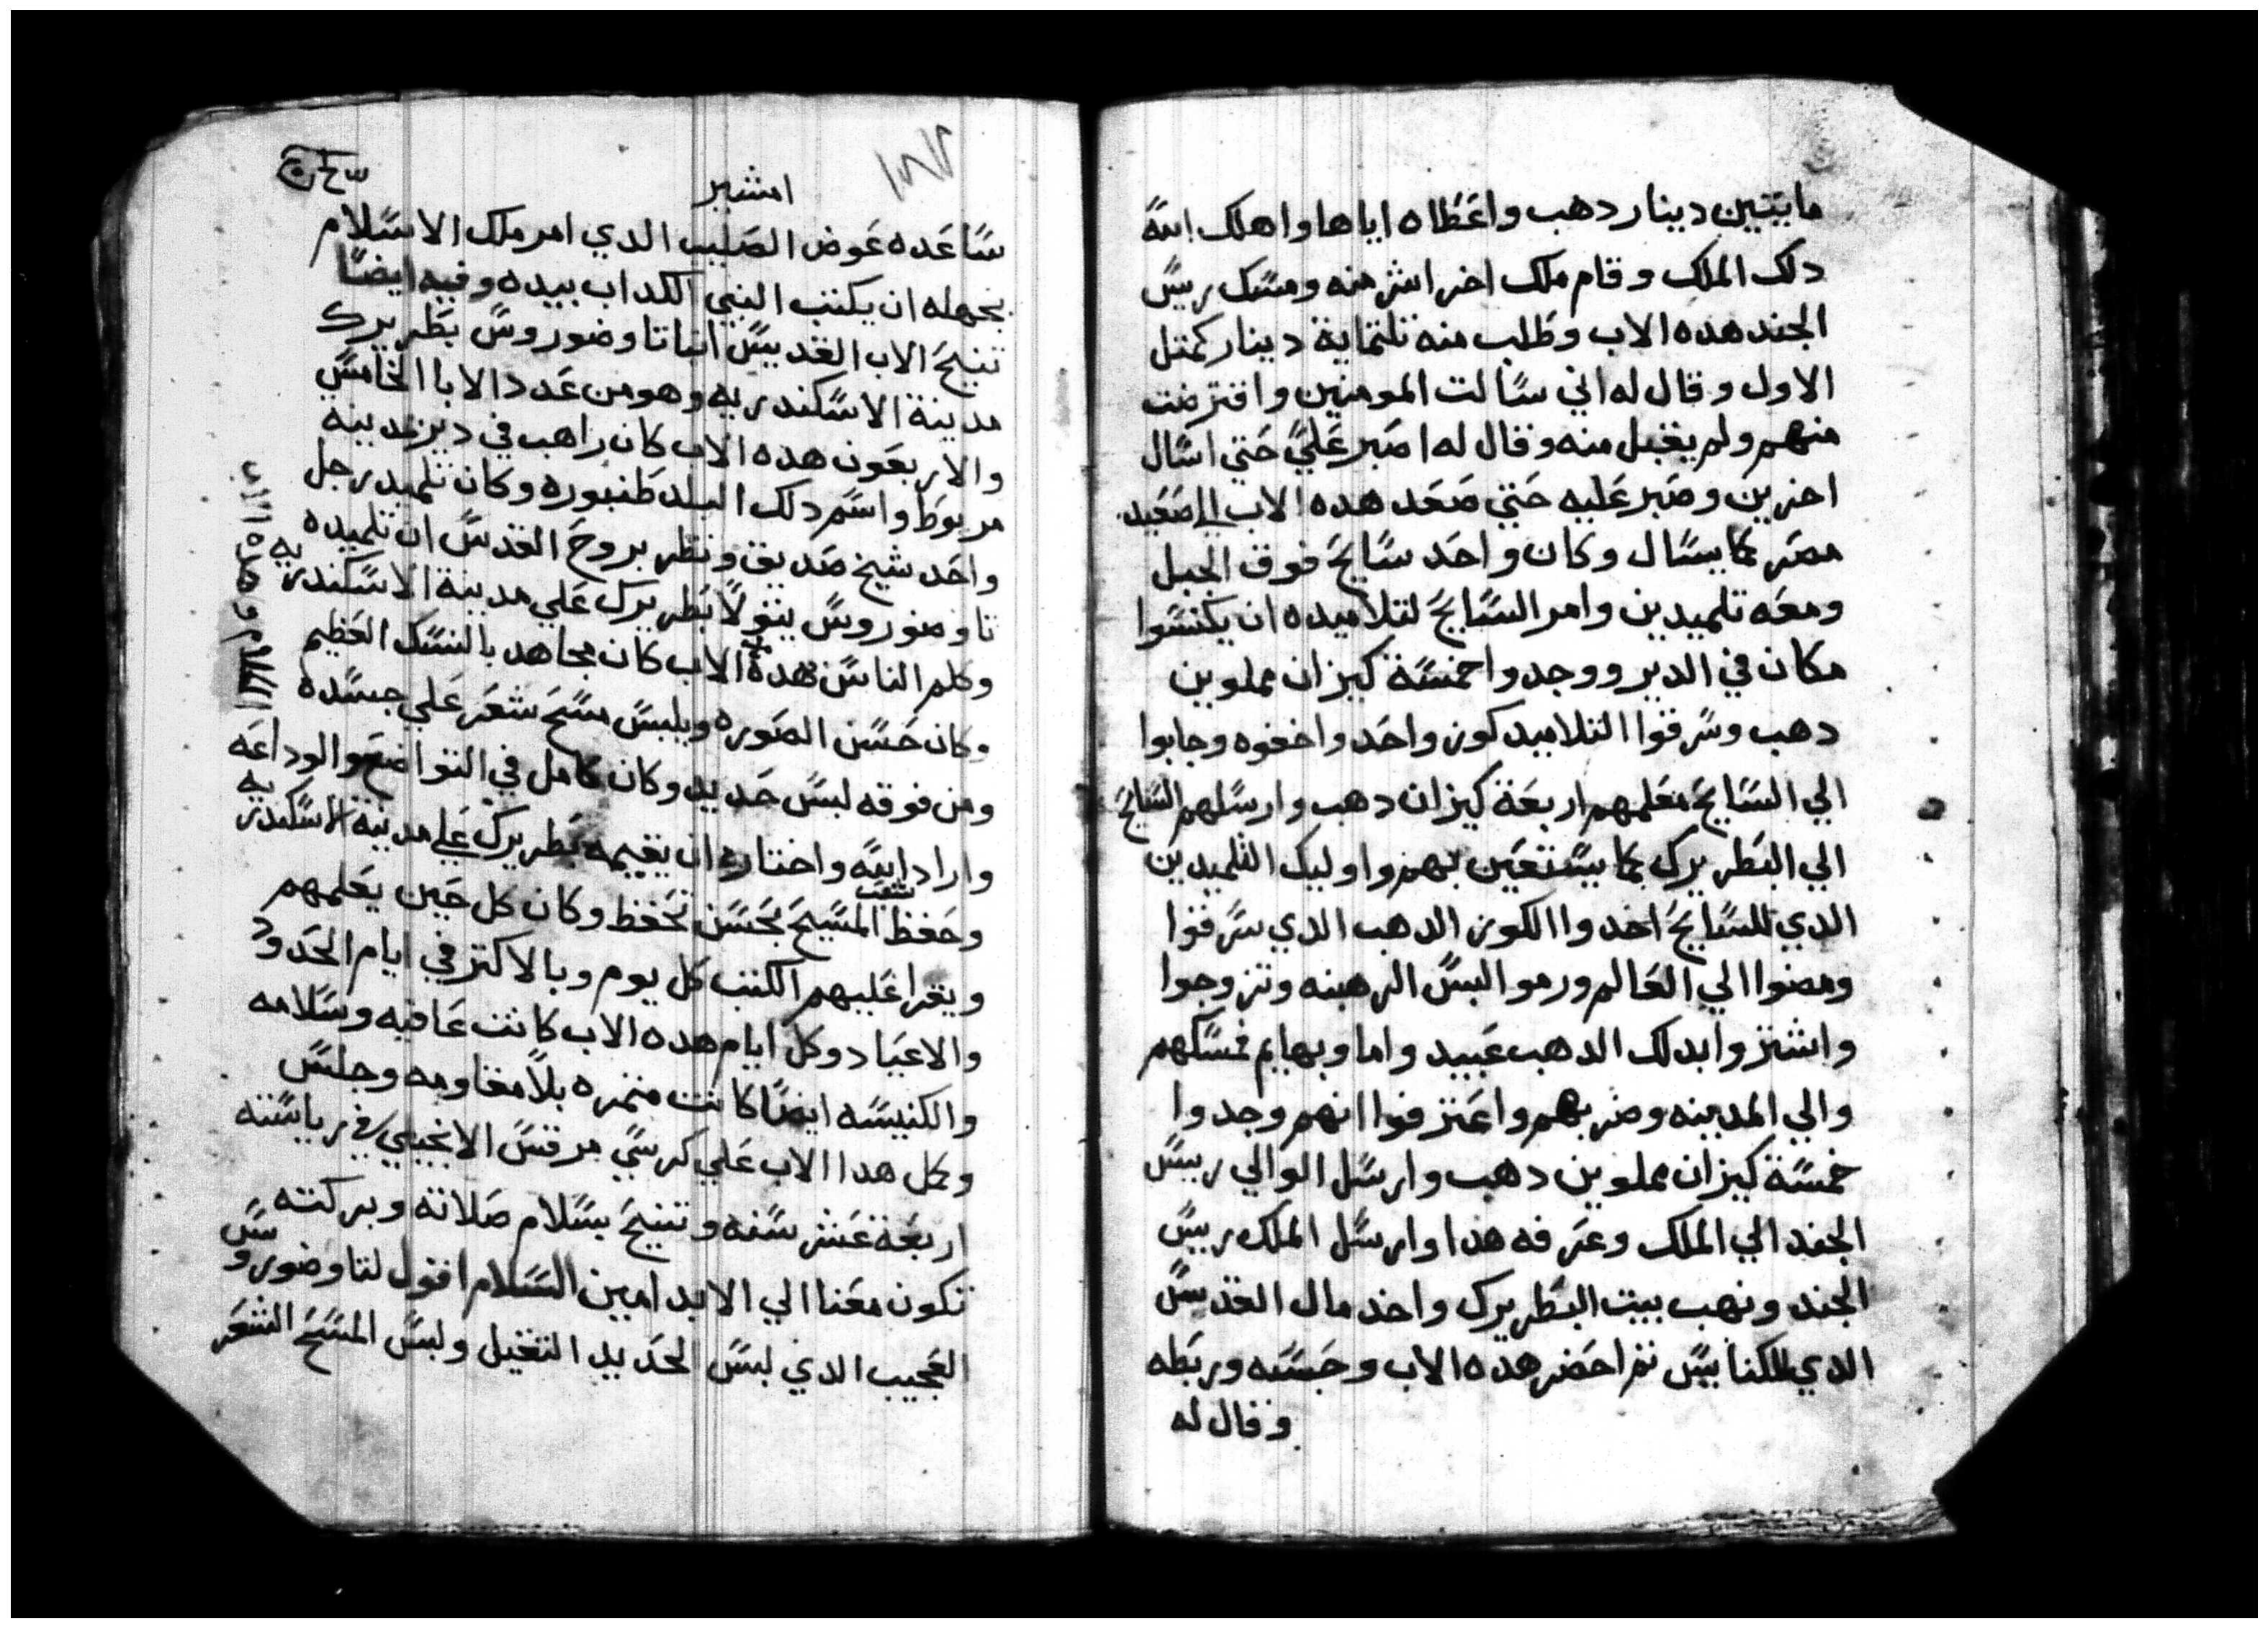 مايتين دينار دهب واعطاه اياها واهلك الله
دلك الملك وقام ملك اخر اشر منه ومسك ريس
الجند هده الاب وطلب منه تلتماية دينار كمتل
الاول وقال له اني سالت المومنين واقترضت
منهم ولم يقبل منه وقال له اصبر علي حتي اسال
اخرين وصبر عليه حتي صعد هده الاب الي صعيد
مصر كما يسال وكان واحد سايح فوق الجبل
ومعه تلميدين وامر السايح لتلاميده ان يكنسوا
مكان في الدير ووجدوا خمسة كيزان مملوين
دهب وسرقوا التلاميد كوز واحد واخفوه وجابوا
الي السايح معلمهم اربعة كيزان دهب وارسلهم السايح
الي البطريرك كما يستعين بهم واوليك التلميدين
الدي للسايح اخدوا الكوز الدهب الدي سرقوا
ومضوا الي العالم ورموا لبس الرهبنه وتزوجوا
واشتروا بدلك الدهب عبيد واما وبهايم فمسكهم
والي المدينه وضربهم واعترفوا انهم وجدوا
خمسة كيزان مملوين دهب وارسل الوالي رييس
الجند الي الملك وعرفه هدا وارسل الملك رييس
الجند ونهب بيت البطريرك واخد مال القدس
الدي للكنايس تم احضر هده الاب وحبسه وربطه
وقال له
امشير
ساعده عوض الصليب الدي امر ملك الاسلام
بجهله ان يكتب النبي الكداب بيده وفيه ايضا
تنيح الاب القديس انبا تاوضوروس بطريرك
مدينة الاسكندريه وهو من عدد الابا الخامس
والاربعون هده الاب كان راهب في دير مدينه
مريوط واسم دلك البلد طنبوره وكان تلميد رجل
واحد شيخ صديق ونظر بروح القدس ان تلميده
تاوضوروس يتولا بطريرك علي مدينة الاسكندريه
وكلم الناس هده الاب كان مجاهد بالنسك العظيم
وكان حسن الصوره ويلبس مسح شعر علي جسده
ومن فوقه لبس حديد وكان كامل في التواضع والوداعه
واراد الله واختاره ان يقيمه بطريرك علي مدينة الاسكندريه
وحفظ شعب المسيح بحسن تحفظ وكان كل حين يعلمهم
ويقرا عليهم الكتب كل يوم وبالاكتر في ايام الحدود
والاعياد وكل ايام هده الاب كانت عافيه وسلامه
والكنيسه ايضا كانت متمره بلا مقاومه وجلس
وكل هدا الاب علي كرسي مرقس الانجيلي في رياسته
اربعة عشر سنه وتنيح بسلام صلاته وبركته
تكون معنا الي الابد امين السلام اقول لتاوضوروس
العجيب الدي لبس الحديد التقيل ولبس المسح الشعر